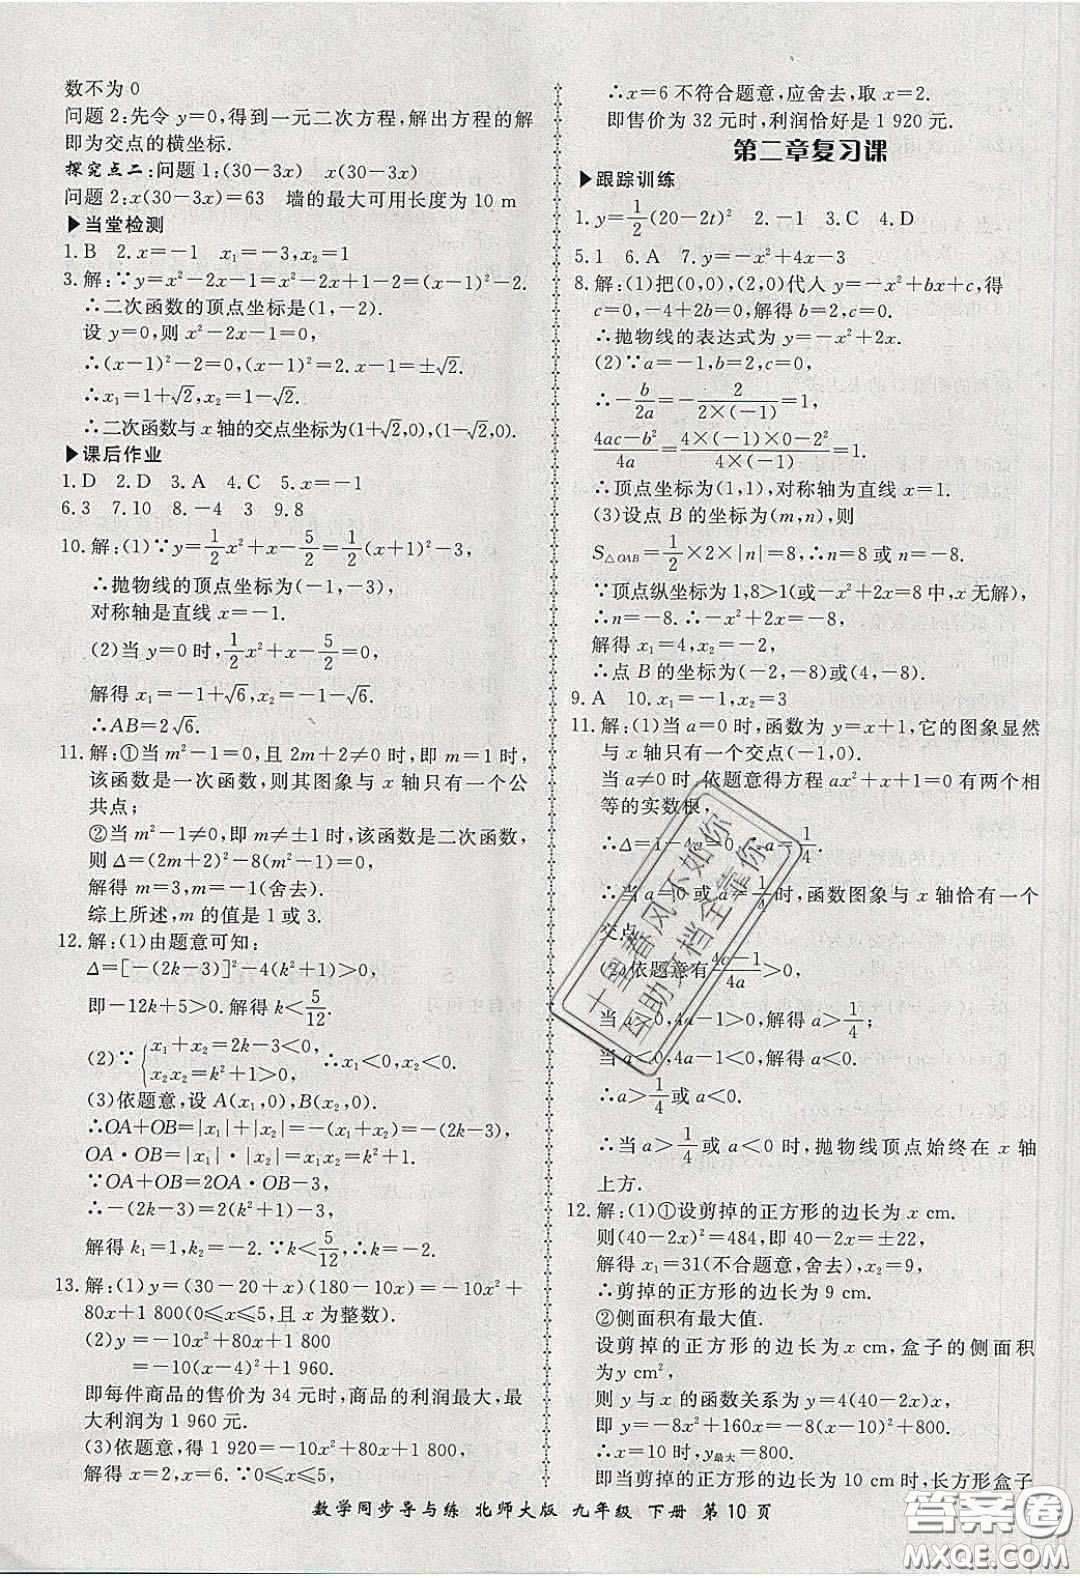 数不为 0
问题 2:先令 y=0,得到一元二次方程,解出方程的解
即为交点的横坐标.
探究点二:问题 1:(30-3x) x(30-3x)
问题 2:x(30-3x)=63 墙的最大可用长度为 10 m
▶当堂检测
1. B 2. x=-1 x₁=-3,x₂=1
3. 解:∵y=x²-2x-1=x²-2x+1-2=(x-1)²-2.
∴二次函数的顶点坐标是(1,-2).
设 y=0,则 x²-2x-1=0,
∴(x-1)²-2=0,(x-1)²=2. x-1=±√2.
∴x₁=1+√2,x₂=1-√2.
∴二次函数与 x 轴的交点坐标为(1+√2,0),(1-√2,0).
▶课后作业
1. D 2. D 3. A 4. C 5. x=-1
6. 3 7. 10 8. -4 3 9. 8
10. 解:(1)∵y=1/2x²+x-5/2=1/2(x+1)²-3,
∴抛物线的顶点坐标为(-1,-3).
对称轴是直线 x=-1.
(2)当 y=0 时,1/2x²+x-5/2=0,
解得 x₁=-1+√6,x₂=-1-√6.
∴AB=2√6.
11. 解:①当 m²-1=0,且 2m+2≠0 时,即 m=1 时,
该函数是一次函数,则其图象与 x 轴只有一个公
共点;
②当 m²-1≠0,即 m≠±1 时,该函数是二次函数,
则 Δ=(2m+2)²-8(m²-1)=0,
解得 m=3,m=-1(舍去).
综上所述,m 的值是 1 或 3.
12. 解:(1)由题意可知:
Δ=[-(2k-3)]²-4(k²+1)>0,
即-12k+5>0. 解得 k<5/12.
(2)∵{x₁+x₂=2k-3<0, x₂x₂=k²+1>0, ∴k<0,k<0.
(3)依题意,设 A(x₁,0),B(x₂,0).
∴OA+OB=|x₁|+|x₂|=-(x₁+x₂)=-(2k-3),
OA·OB=|x₁|·|x₂|=x₁x₂=k²+1.
∵OA+OB=2OA·OB-3,
∴-(2k-3)=2(k²+1)-3,
解得 k₁=1,k₂=-2. ∵k<5/12,∴k=-2.
13. 解:(1)y=(30-20+x)(180-10x)=-10x²+
80x+1 800(0≤x≤5,且 x 为整数).
(2)y=-10x²+80x+1 800
=-10(x-4)²+1 960.
即每件商品的售价为 34 元时,商品的利润最大,最
大利润为 1 960 元.
(3)依题意,得 1 920=-10x²+80x+1 800,
解得 x=2,x=6. ∵0≤x≤5,
∴x=6 不符合题意,应舍去,取 x=2.
即售价为 32 元时,利润恰好是 1 920 元.
第二章复习课
▶跟踪训练
1. y=1/2(20-2t)² 2. -1 3. C 4. D
5. 1 6. A 7. y=-x²+4x-3
8. 解:(1)把(0,0),(2,0)代人 y=-x²+bx+c,得
c=0,-4+2b=0,解得 b=2,c=0.
∴抛物线的表达式为 y=-x²+2x.
(2)∵a=-1,b=2,c=0.
∴-b/2a=-2/(2×(-1))=1,
(4ac-b²)/4a=(4×(-1)×0-2²)/(4×(-1))=1.
∴顶点坐标为(1,1),对称轴为直线 x=1.
(3)设点 B 的坐标为(m,n),则
S△OAB=1/2×2×|n|=8,∴n=8 或 n=-8.
∵顶点纵坐标为 1,8>1(或-x²+2x=8 中,x 无解),
∴n=-8. ∴-x²+2x=-8,
解得 x₁=4,x₂=-2.
∴点 B 的坐标为(-2,-8)或(4,-8).
9. A 10. x₁=-1,x₂=3
11. 解:(1)当 a=0 时,函数为 y=x+1,它的图象显然
与 x 轴只有一个交点(-1,0).
当 a≠0 时,依题意得方程 ax²+x+1=0 有两个相
等的实数根,
∴Δ=1-4a=0,∴a=1/4.
∴当 a=0 或 a=1/4 时,函数图象与 x 轴恰有一个
交点.
(2)依题意有 (4a-1)/4a>0,
当 a>0,4a-1>0,解得 a>1/4;
当 a<0,4a-1<0,解得 a<0.
∴a>1/4 或 a<0.
∴当 a>1/4 或 a<0 时,抛物线顶点始终在 x 轴
上方.
12. 解:(1)①设剪掉的正方形的边长为 x cm.
则(40-2x)²=484,即 40-2x=±22,
解得 x₁=31(不合题意,舍去),x₂=9,
∴剪掉的正方形的边长为 9 cm.
②侧面积有最大值.
设剪掉的正方形的边长为 x cm,盒子的侧面积
为y cm²,
则 y 与 x 的函数关系为 y=4(40-2x)x.
即 y=-8x²+160x=-8(x-10)²+800.
∴x=10 时,y最大=800.
即当剪掉的正方形的边长为 10 cm 时,长方形盒子
数学同步导与练 北师大版 九年级 下册 第 10 页
十里春风不如你
互助文档全靠你
答案圈
MXQE.COM